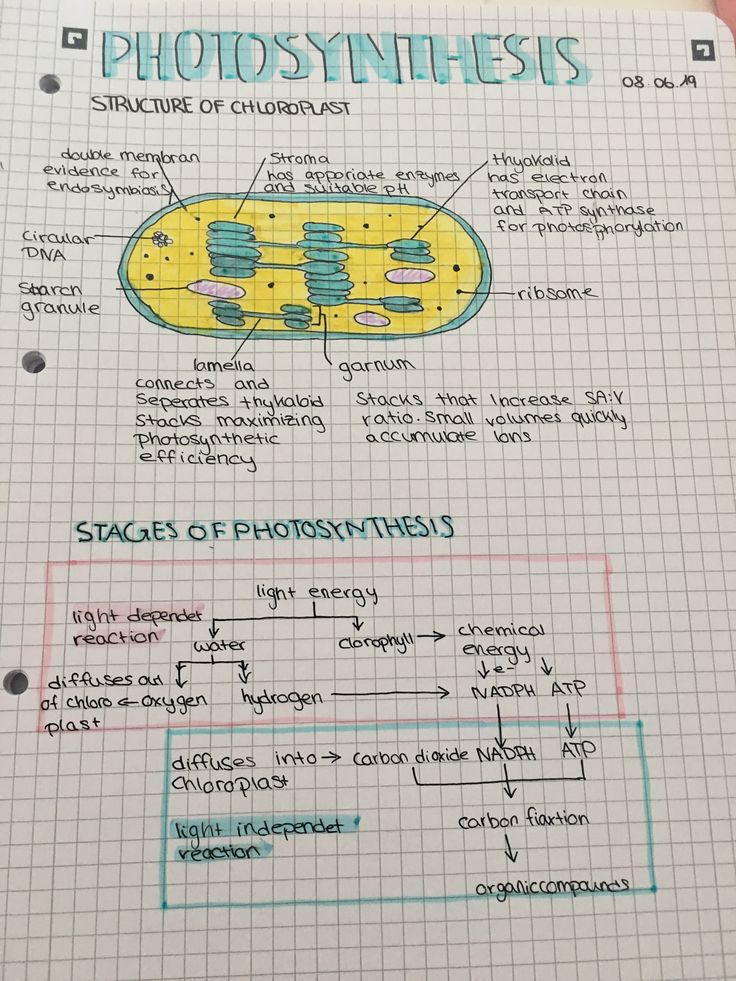 PHOTOSYNTHESIS
08.06.19
STRUCTURE OF CHLOROPLAST
double membran
evidence for
endosymbiosis
Stroma
has apporiate enzymes
and suitable pH
thyakoid
has electron
transport chain
and ATP synthase
for photosphorylation
Circular
DNA
Starch
granule
ribsome
lamella
connects and
seperates thykaboid
stacks maximizing
photosynthetic
efficiency
garnum
Stacks that increase SA:V
ratio. Small volumes quickly
accumulate ions
STAGES OF PHOTOSYNTHESIS
light energy
light dependet
reaction
water
clorophyll → chemical
energy
e-
diffuses out
of chloro ← oxygen
plast
hydrogen → NADPH ATP
diffuses into → carbon dioxide NADPH ATP
chloroplast
light independet
reaction
carbon fiaxtion
organiccompounds